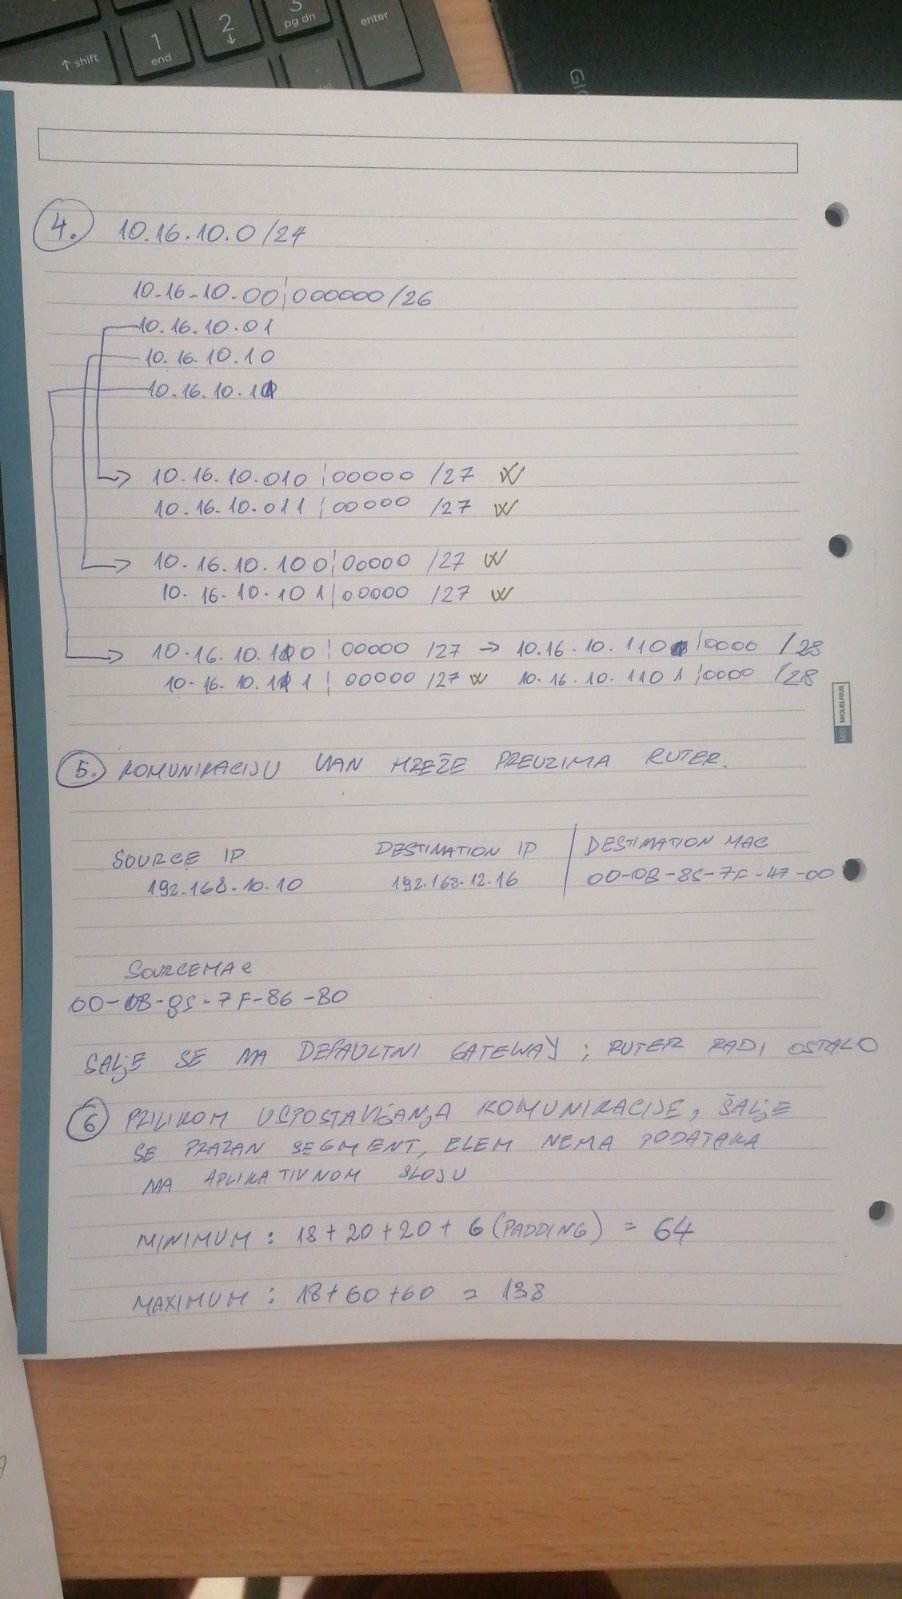 ↑ shift
1
end
2
↓
3
pg dn
enter
4. 10.16.10.0/24
10.16.10.00|000000/26
10.16.10.01
10.16.10.10
10.16.10.11
10.16.10.010|00000 /27
10.16.10.011|00000 /27
10.16.10.100|00000 /27
10.16.10.101|00000 /27
10.16.10.110|00000 /27 → 10.16.10.1100|0000 /28
10.16.10.111|00000 /27 10.16.10.1101|0000 /28
MOLESKINE
5. KOMUNIKACIJU VAN MREŽE PREUZIMA RUTER.
SOURCE IP DESTINATION IP DESTINATION MAC
192.168.10.10 192.168.12.16 00-0B-85-7F-47-00
SOURCE MAC
00-0B-85-7F-86-B0
ŠALJE SE NA DEFAULTNI GATEWAY; RUTER RADI OSTALO
6 PRILIKOM USPOSTAVLJANJA KOMUNIKACIJE, ŠALJE
SE PRAZAN SEGMENT, ELEM NEMA PODATAKA
NA APLIKATIVNOM SLOJU
MINIMUM: 18+20+20+6(PADDING) = 64
MAXIMUM: 18+60+60 = 138